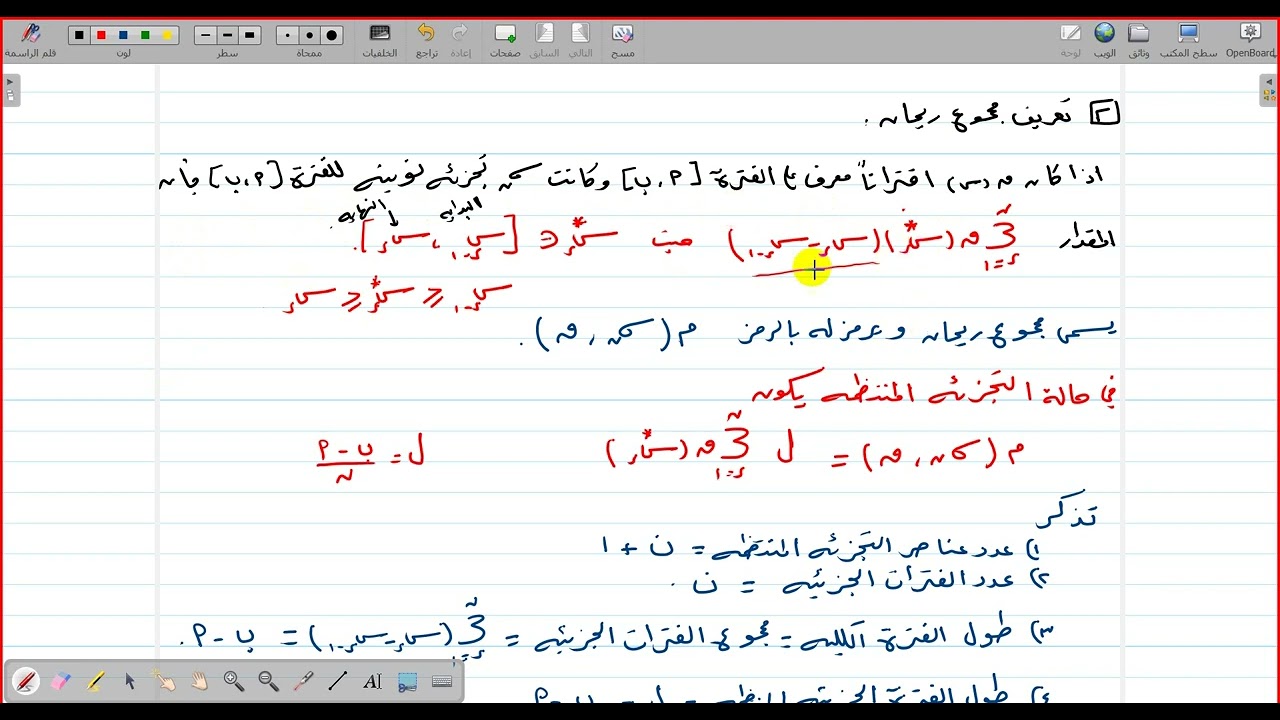 قلم الراسمة لون سطر ممحاة الخلفيات تراجع إعادة صفحات السابق التالي مسح لوحة الويب وثائق سطح المكتب OpenBoard
٢ تعريف مجموع ريمان .
اذا كان ق(س) اقتراناً معرف على الفترة [أ ، ب] وكانت σن تجزئه نونيه للفترة [أ ، ب] فإن
البدايه النهايه
المقدار ∑ن ر=١ ق(س*ر)(سر - سر-١) حيث س*ر ∈ [سر-١ ، سر] .
سر-١ ≤ س*ر ≤ سر
يسمى مجموع ريمان ونرمز له بالرمز م(σن ، ق) .
في حالة التجزئه المنتظمه يكون
م(σن ، ق) = ل ∑ن ر=١ ق(س*ر) ل = (ب - أ)/ن
تذكر
١) عدد عناصر التجزئه المنتظمه = ن + ١
٢) عدد الفترات الجزئيه = ن .
٣) طول الفترة الكليه = مجموع الفترات الجزئيه = ∑ن ر=١ (سر - سر-١) = ب - أ .